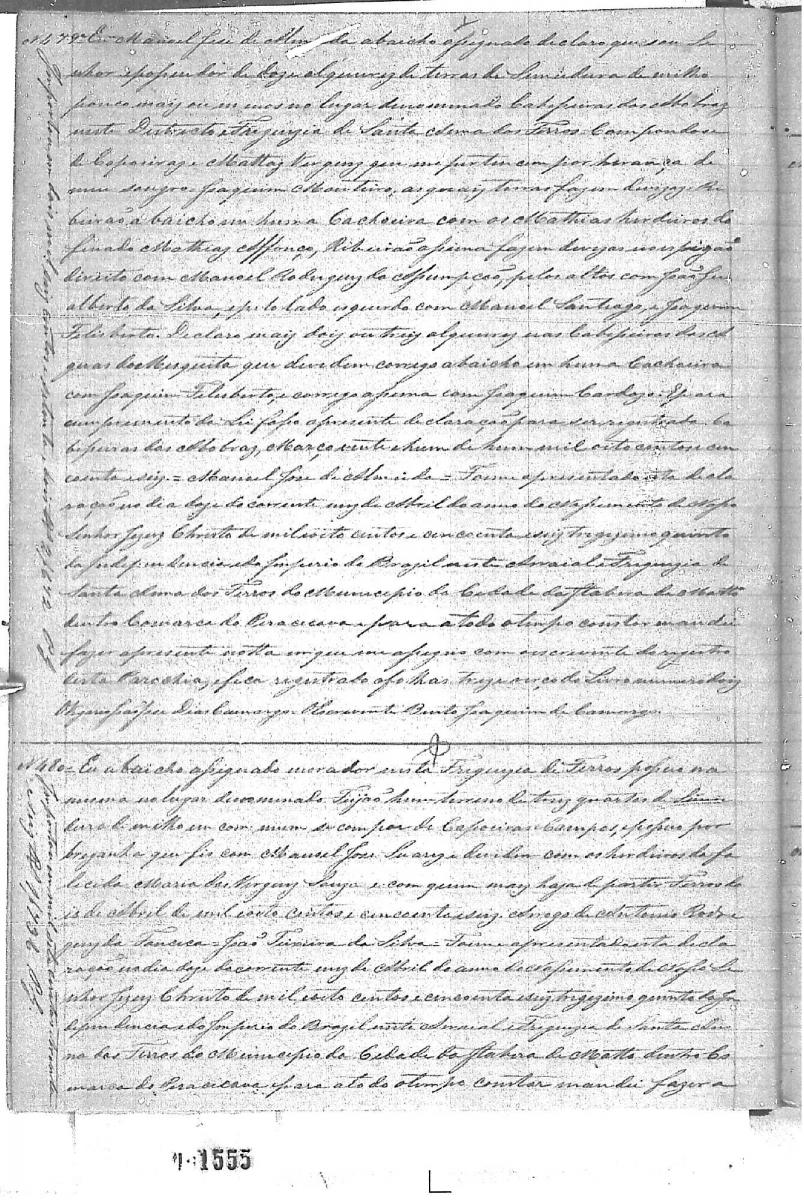 N 479 = Eu Manoel Jose de Almeida abaicho asignado declaro que sou Se
nhor e posuidor de doze alqueires de terras de Semeadura de milho
pouco mais ou menos no lugar denominado Cabeseiras dos
neste Districto e Freguezia de Santa Anna dos Ferros Compondose
de Capoeiras e Mattas Vergens que me pertencem por herança de
meu sougro Joaquim Monteiro, as quais terras fazem devizas Ri
beirão abaicho em huma Cachoeira com os Mathias herdeiros do
finado Mathias Affonço, Ribeirão asima fazem devizas no espigão
direito com Manoel Rodrigues da Asumpção, pelos altos com João Fe
alberto da Silva, e pelo lado esquerdo com Manoel Santiago, e Joaquim
Felisberto. Declaro mais dois ou tres alqueires nas Cabeseiras das A
guas do Mesquita que devidem corrego abaicho em huma Cachoeira
com Joaquim Felisberto, e corrego asima com Joaquim Cardozo. E para
cumprimento da Lei faso a presente declaração para ser registrada. Ca
beseiras dos Março vinte e hum de hum mil oito centos e cin
coenta e seiz = Manoel Jose de Almeida = Foime apresentado esta decla
ração no dia doze do corrente mez de Abril do anno do Nasimento de Noso
Senhor Jezus Christo de mil e oito centos e cincoenta e seiz trigezimo quinto
da Independencia e do Imperio do Brazil neste Arraial e Freguezia de
Santa Anna dos Ferros do Municipio da Cidade da Itabira de Matto
dentro Comarca do Piracicava e para a todo o tempo constar mandei
fazer a presente notta em que me asigno com o escrivente do registro
desta Parochia, e fica registrado a folhas treze verço do Livro numero doiz
Dias Camargo. O Escrivente Bento Joaquim de Camargo.
N 480 = Eu abaicho asignado morador nesta Freguezia de Ferros posuo na
mesma no lugar denominado Feijão hum terreno de trez quartas de Simia
dura de milho em commum se compoa de Capoeiras e Campos, e posuo por
que fis com Manoel Jose Soares e devidem com os herdeiros da fa
lecida Maria das Virgens Souza e com quem mais haja de partir Ferros do
is de Abril de mil e oito centos e cincoenta e seiz. Arogo de Antonio Rodri
gues da Fonceca = João Teixeira da Silva = Foime apresentada esta decla
ração no dia doze do corrente mez de Abril do anno do Nasimento de Noso Se
nhor Jezuz Christo de mil e oito centos e cincoenta e seiz trigezimo quinto da In
dependencia e do Imperio do Brazil neste Arraial e Freguezia de Santa An
na dos Ferros do Municipio da Cidade da Itabira de Matto dentro Co
marca do Piracicava e para a todo o tempo constar mandei fazer a
1555